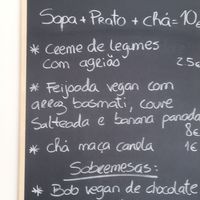 Sopa + Prato + chá = 10€
* Creme de legumes
com agrião 2.5€
* Feijoada vegan com
arroz basmati, couve
Salteada e banana panada
8€
* chá maça canela 1€
Sobremesas:
* Bob vegan de chocolate